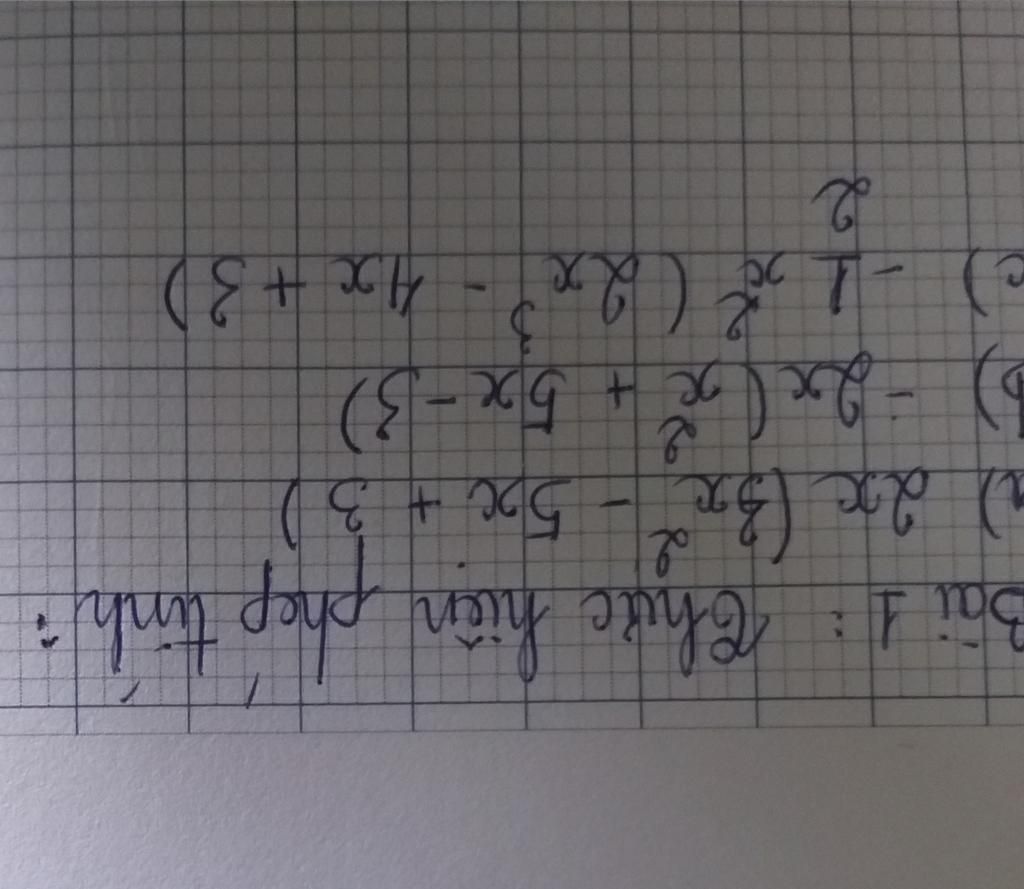 Bài 1: Thực hiện phép tính:
a) 2x (3x² - 5x + 3)
b) - 2x (x² + 5x - 3)
c) - 1/2 x² (2x³ - 4x + 3)